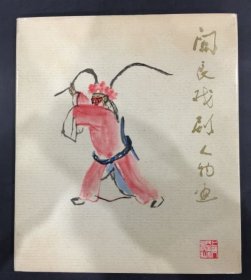 關良戏剧人物画